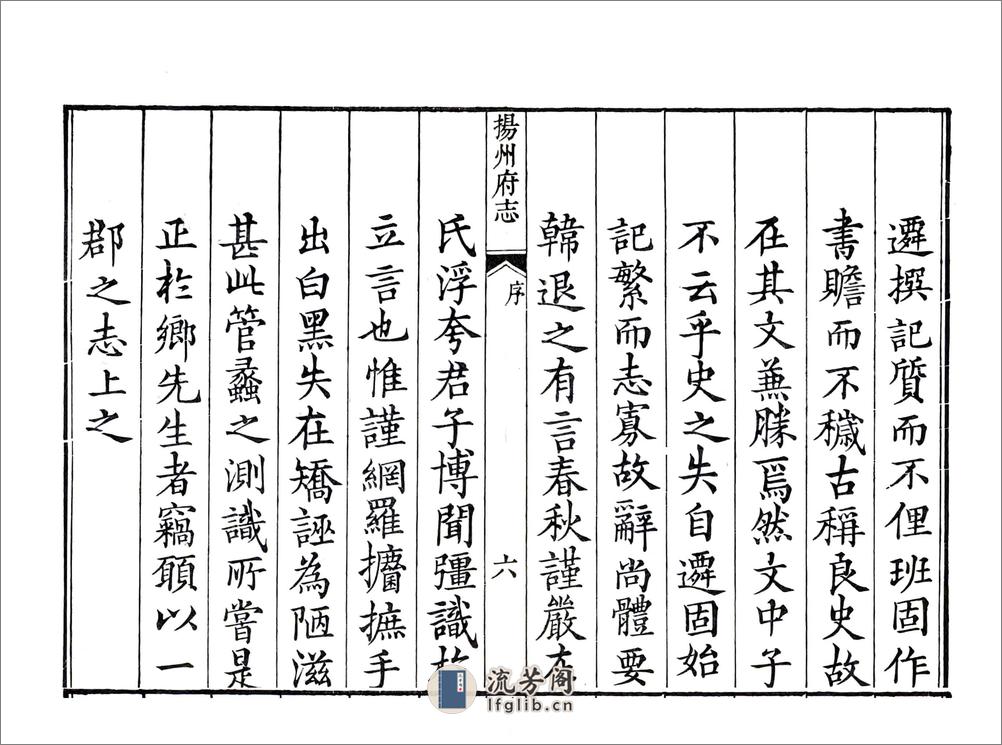 遷撰記質而不俚班固作
書贍而不穢古稱良史故
在其文兼勝焉然文中子
不云乎史之失自遷固始
記繁而志寡故辭尚體要
韓退之有言春秋謹嚴左
揚州府志
序
六
氏浮夸君子博聞彊識
立言也惟謹網羅攟摭手
出白黑失在矯誣為陋滋
甚此管蠡之測識所嘗是
正於鄉先生者竊願以一
郡之志上之
流芳阁
lfglib.cn